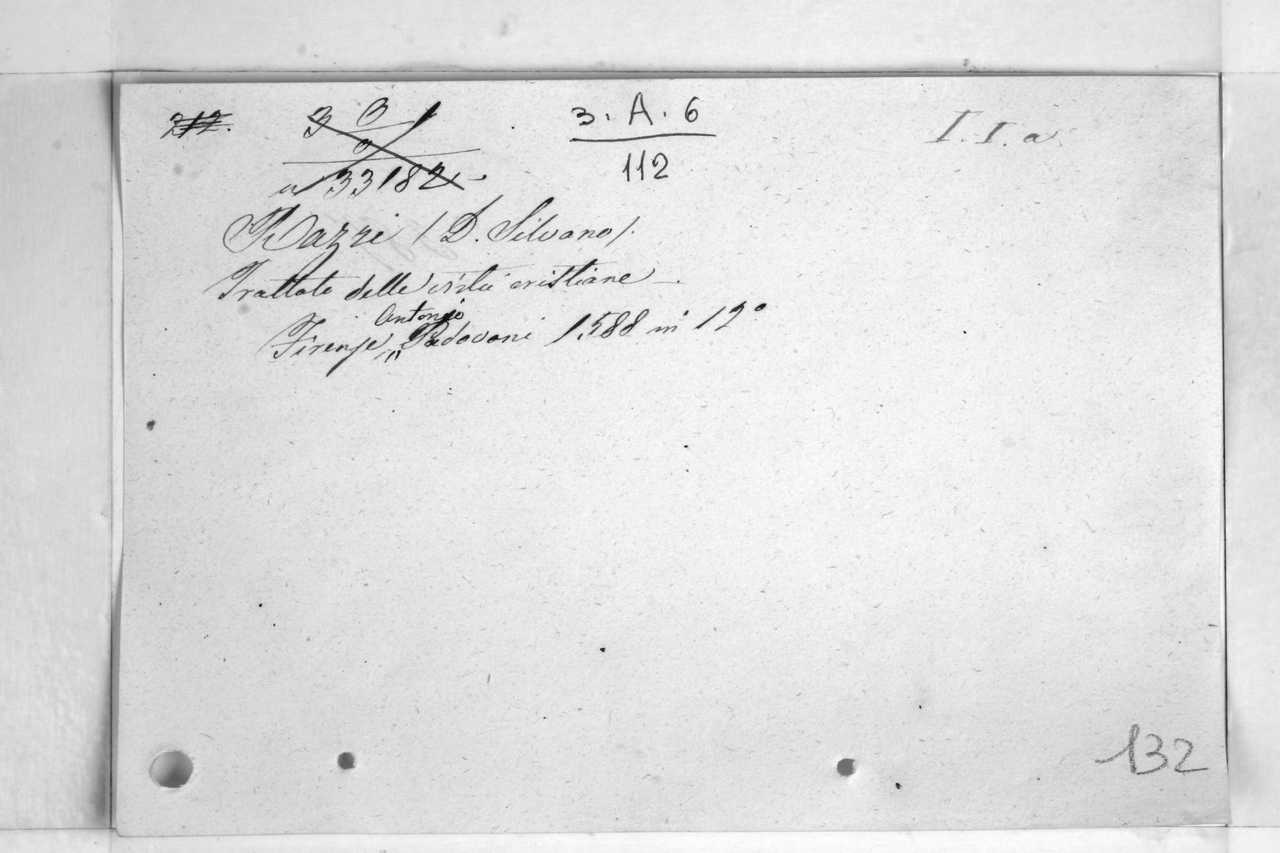 212.
3 O 1
a 33182.
3. A. 6
112
I. I. a.
Razzi (D. Silvano).
Trattato delle cristiane.
Antonio
Firenze, Padovani 1588 in 12°
132